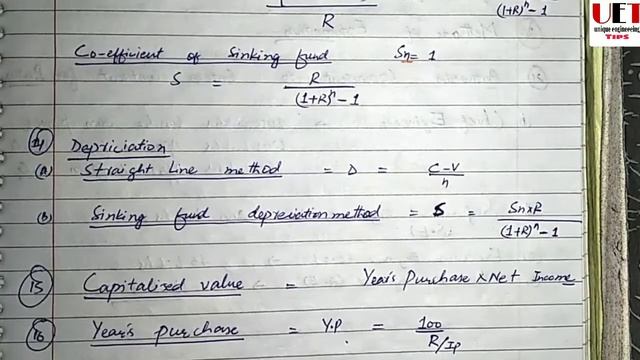 R
(1+R)ⁿ - 1
UET
unique engineering
TIPS
Co-efficient of Sinking fund Sn = 1
S = R / (1+R)ⁿ - 1
14 Depriciation
(a) Straight Line method = D = C-V / n
(b) Sinking fund depreciation method = S = Sn x R / (1+R)ⁿ - 1
15 Capitalised value = Year's Purchase x Net Income
16 Year's purchase = Y.P = 100 / R/Ip